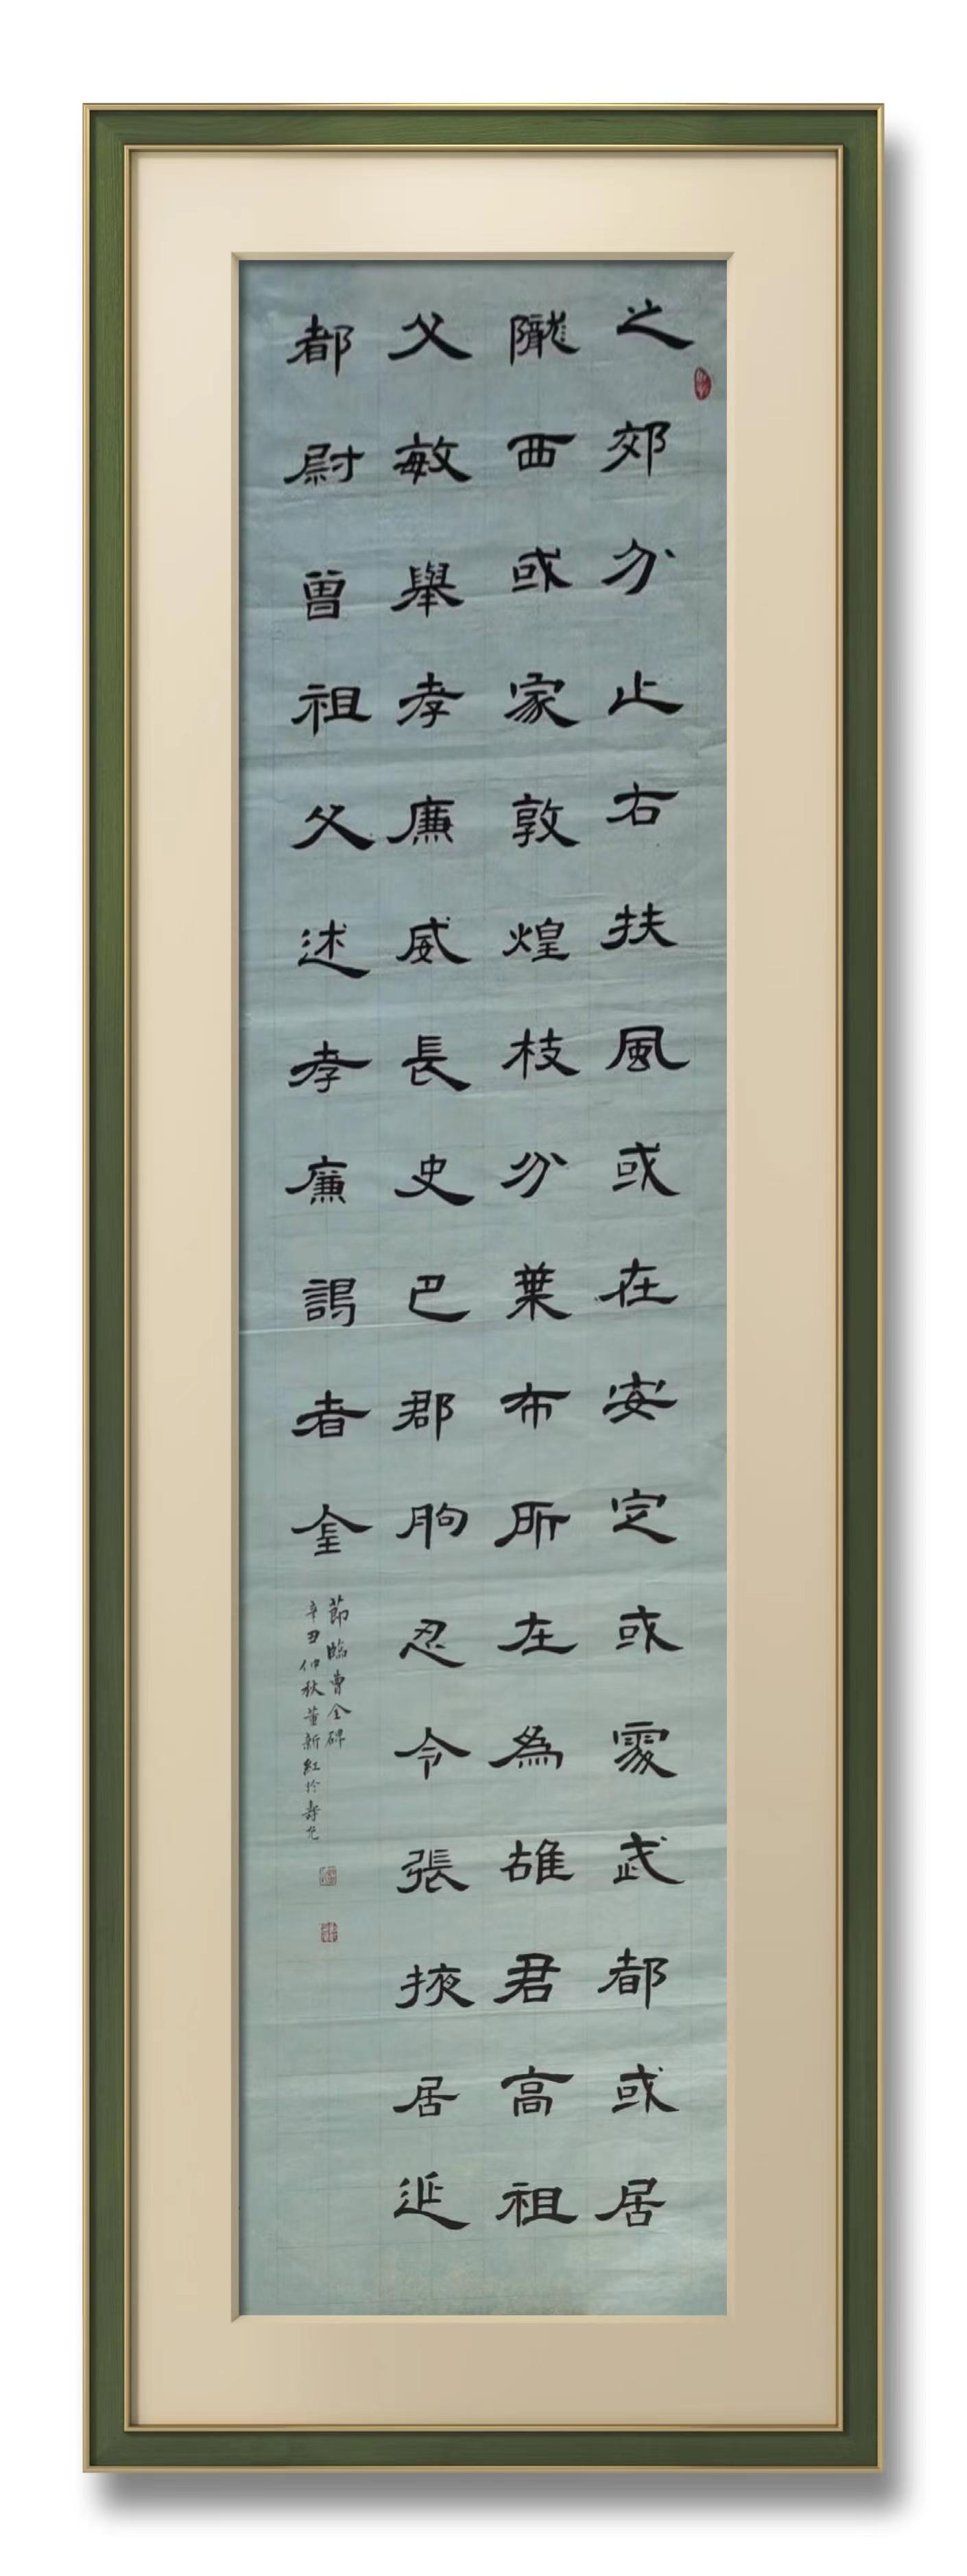 之郊分止右扶風或在安定或處武都或居
隴西或家敦煌枝分葉布所在為雄君高祖
父敏舉孝廉威長史巴郡朐忍令張掖居延
都尉曾祖父述孝廉謁者金
節臨曹全碑
辛丑仲秋董新紅於壽光